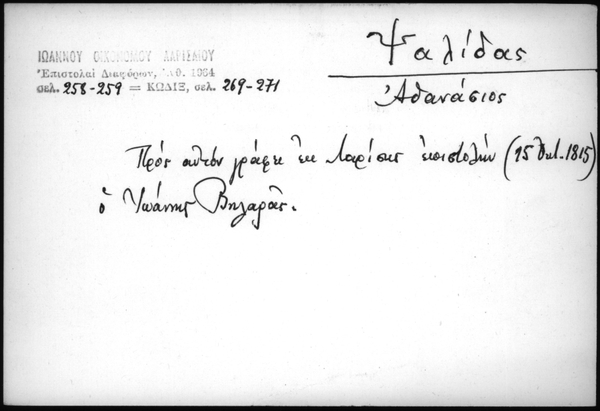 ΙΩΑΝΝΟΥ ΟΙΚΟΝΟΜΟΥ ΛΑΡΙΣΑΙΟΥ
Ἐπιστολαὶ Διαφόρων, Ἀθ. 1964
σελ. 258-259 = ΚΩΔΙΞ, σελ. 269-271
Ψαλίδας
Ἀθανάσιος
Πρὸς αὐτὸν γράφει ἐκ Λαρίσης ἐπιστολὴν (15 Ὀκτ. 1815)
ὁ Ἰωάννης Βηλαρᾶς.